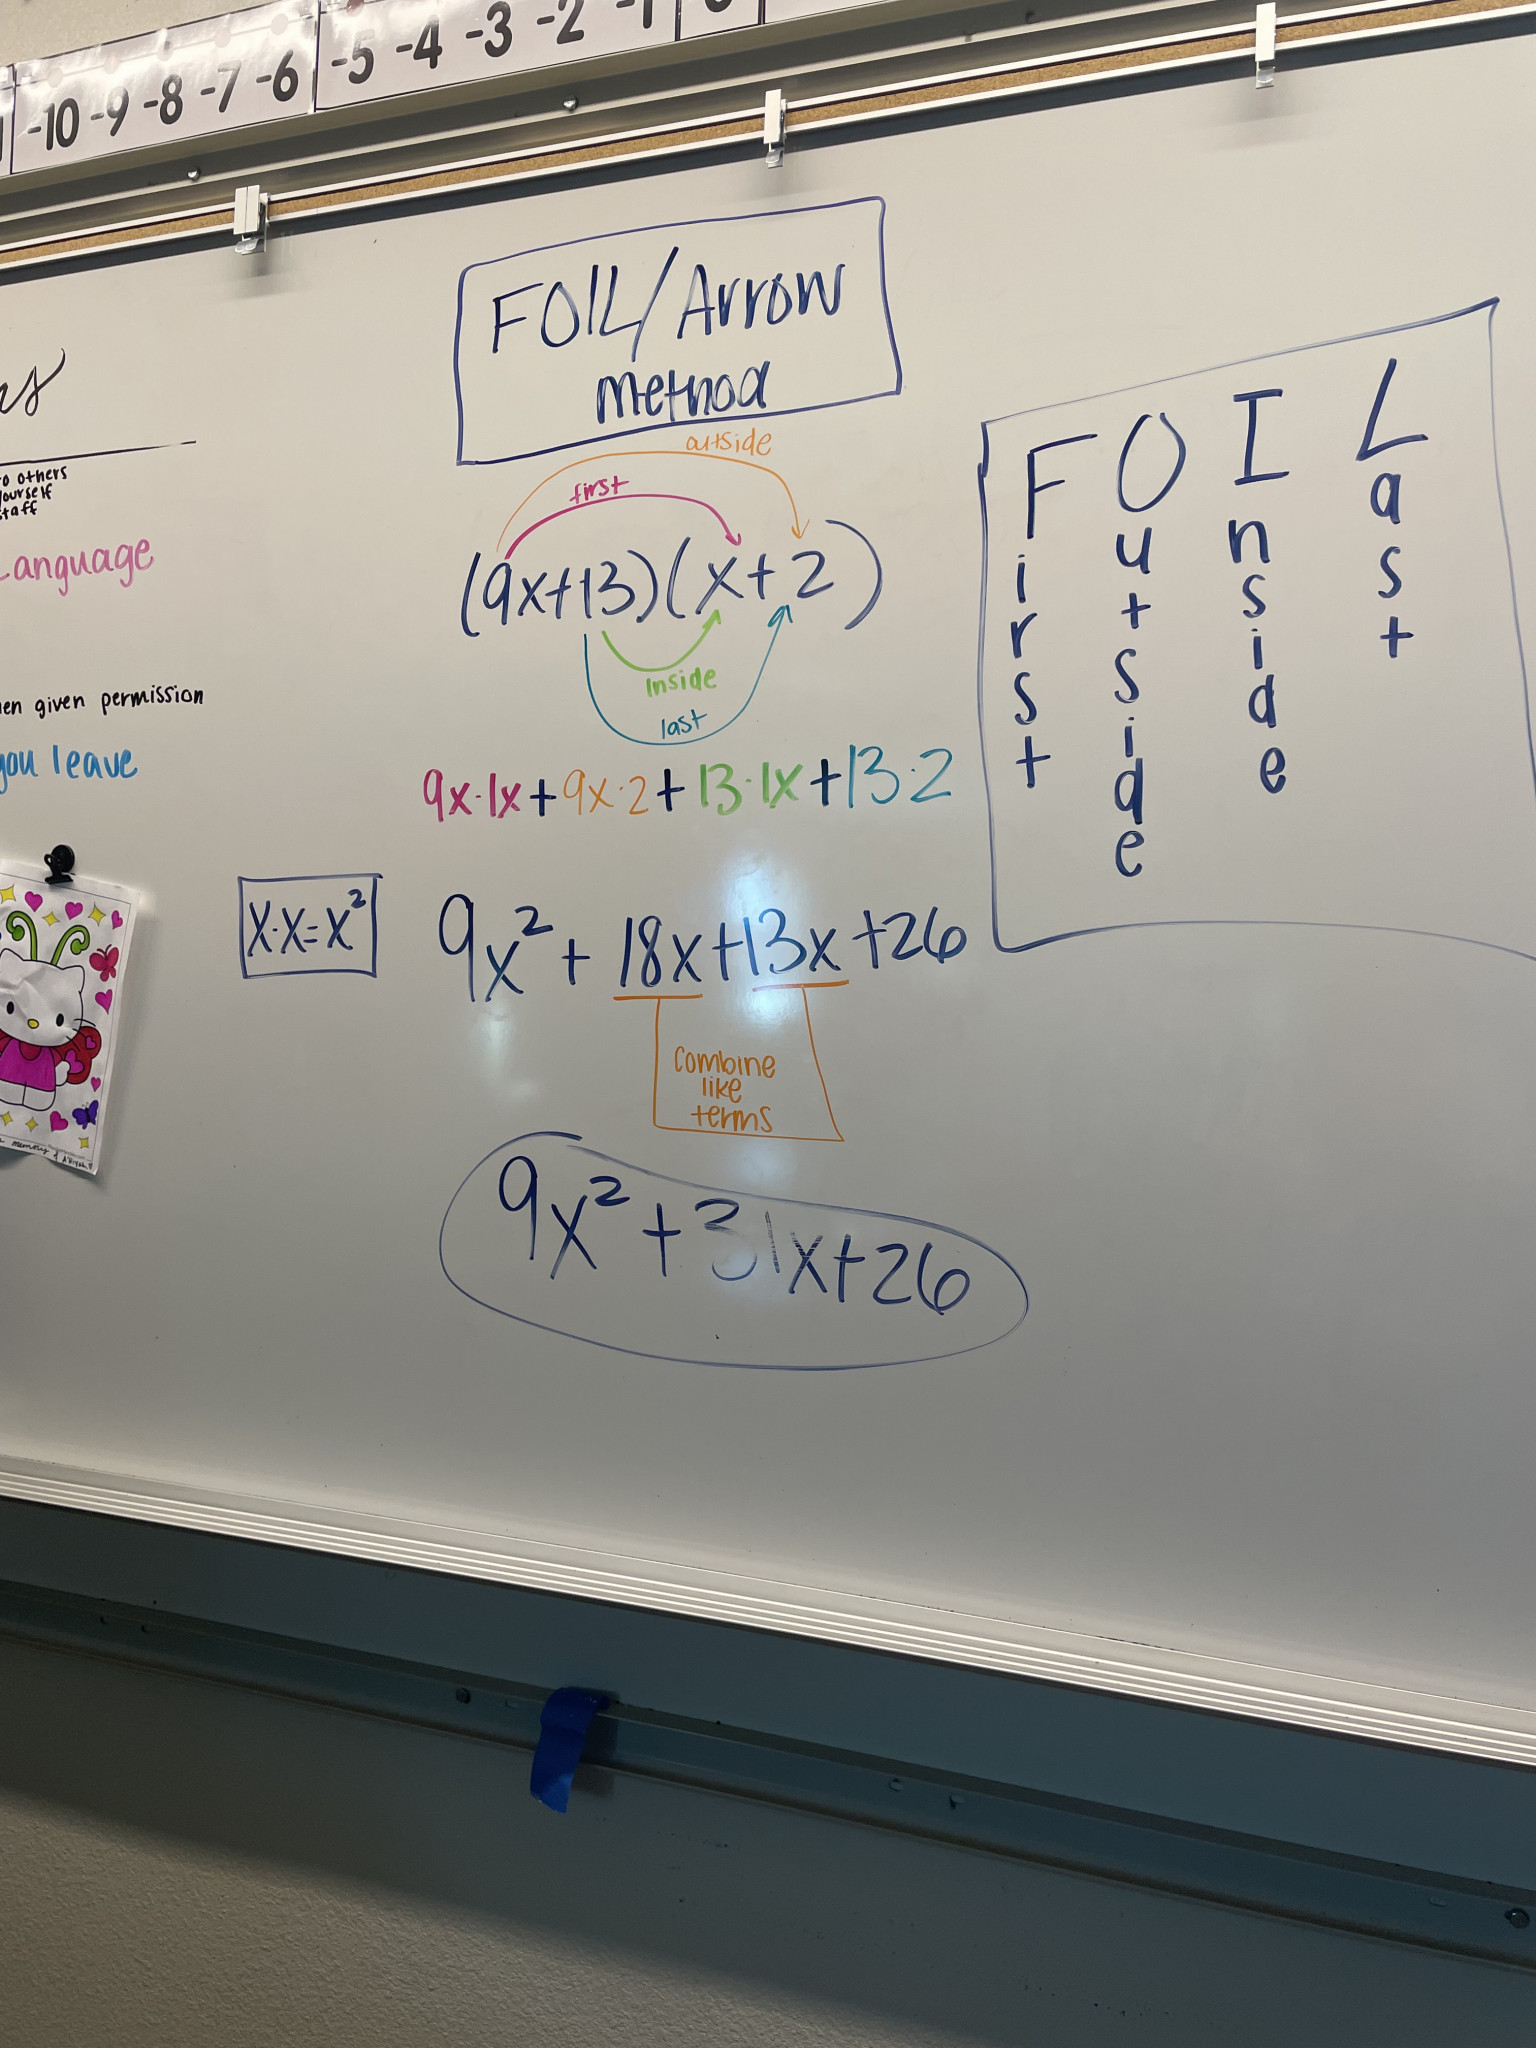 -10 -9 -8 -7 -6 -5 -4 -3 -2 -1
FOIL/Arrow
Method
outside
first
(9x+13)(x+2)
Inside
last
9x·1x+9x·2+13·1x+13·2
x·x=x²
9x²+18x+13x+26
Combine
like
terms
9x²+31x+26
First
Outside
Inside
Last
others
yourself
staff
Language
given permission
you leave